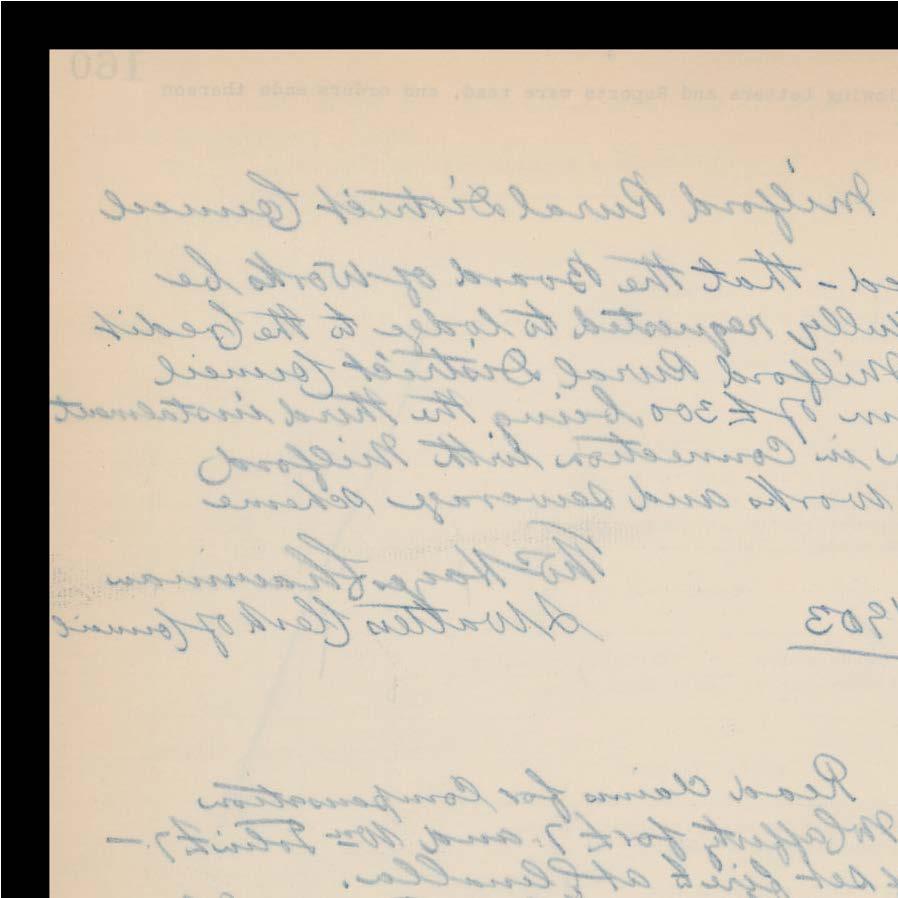 160
llowing Letters and Reports were read, and orders made thereon
Milford Rural District Council
ed - that the Board of Works be
fully requested to lodge to the Credit
Milford Rural District Council
m of £300 being the third instalment
in Connection with Milford
works and sewerage scheme
Chairman
1903
Clerk of Council
Read claims for Compensation
for £7 and Wm
set fire to at